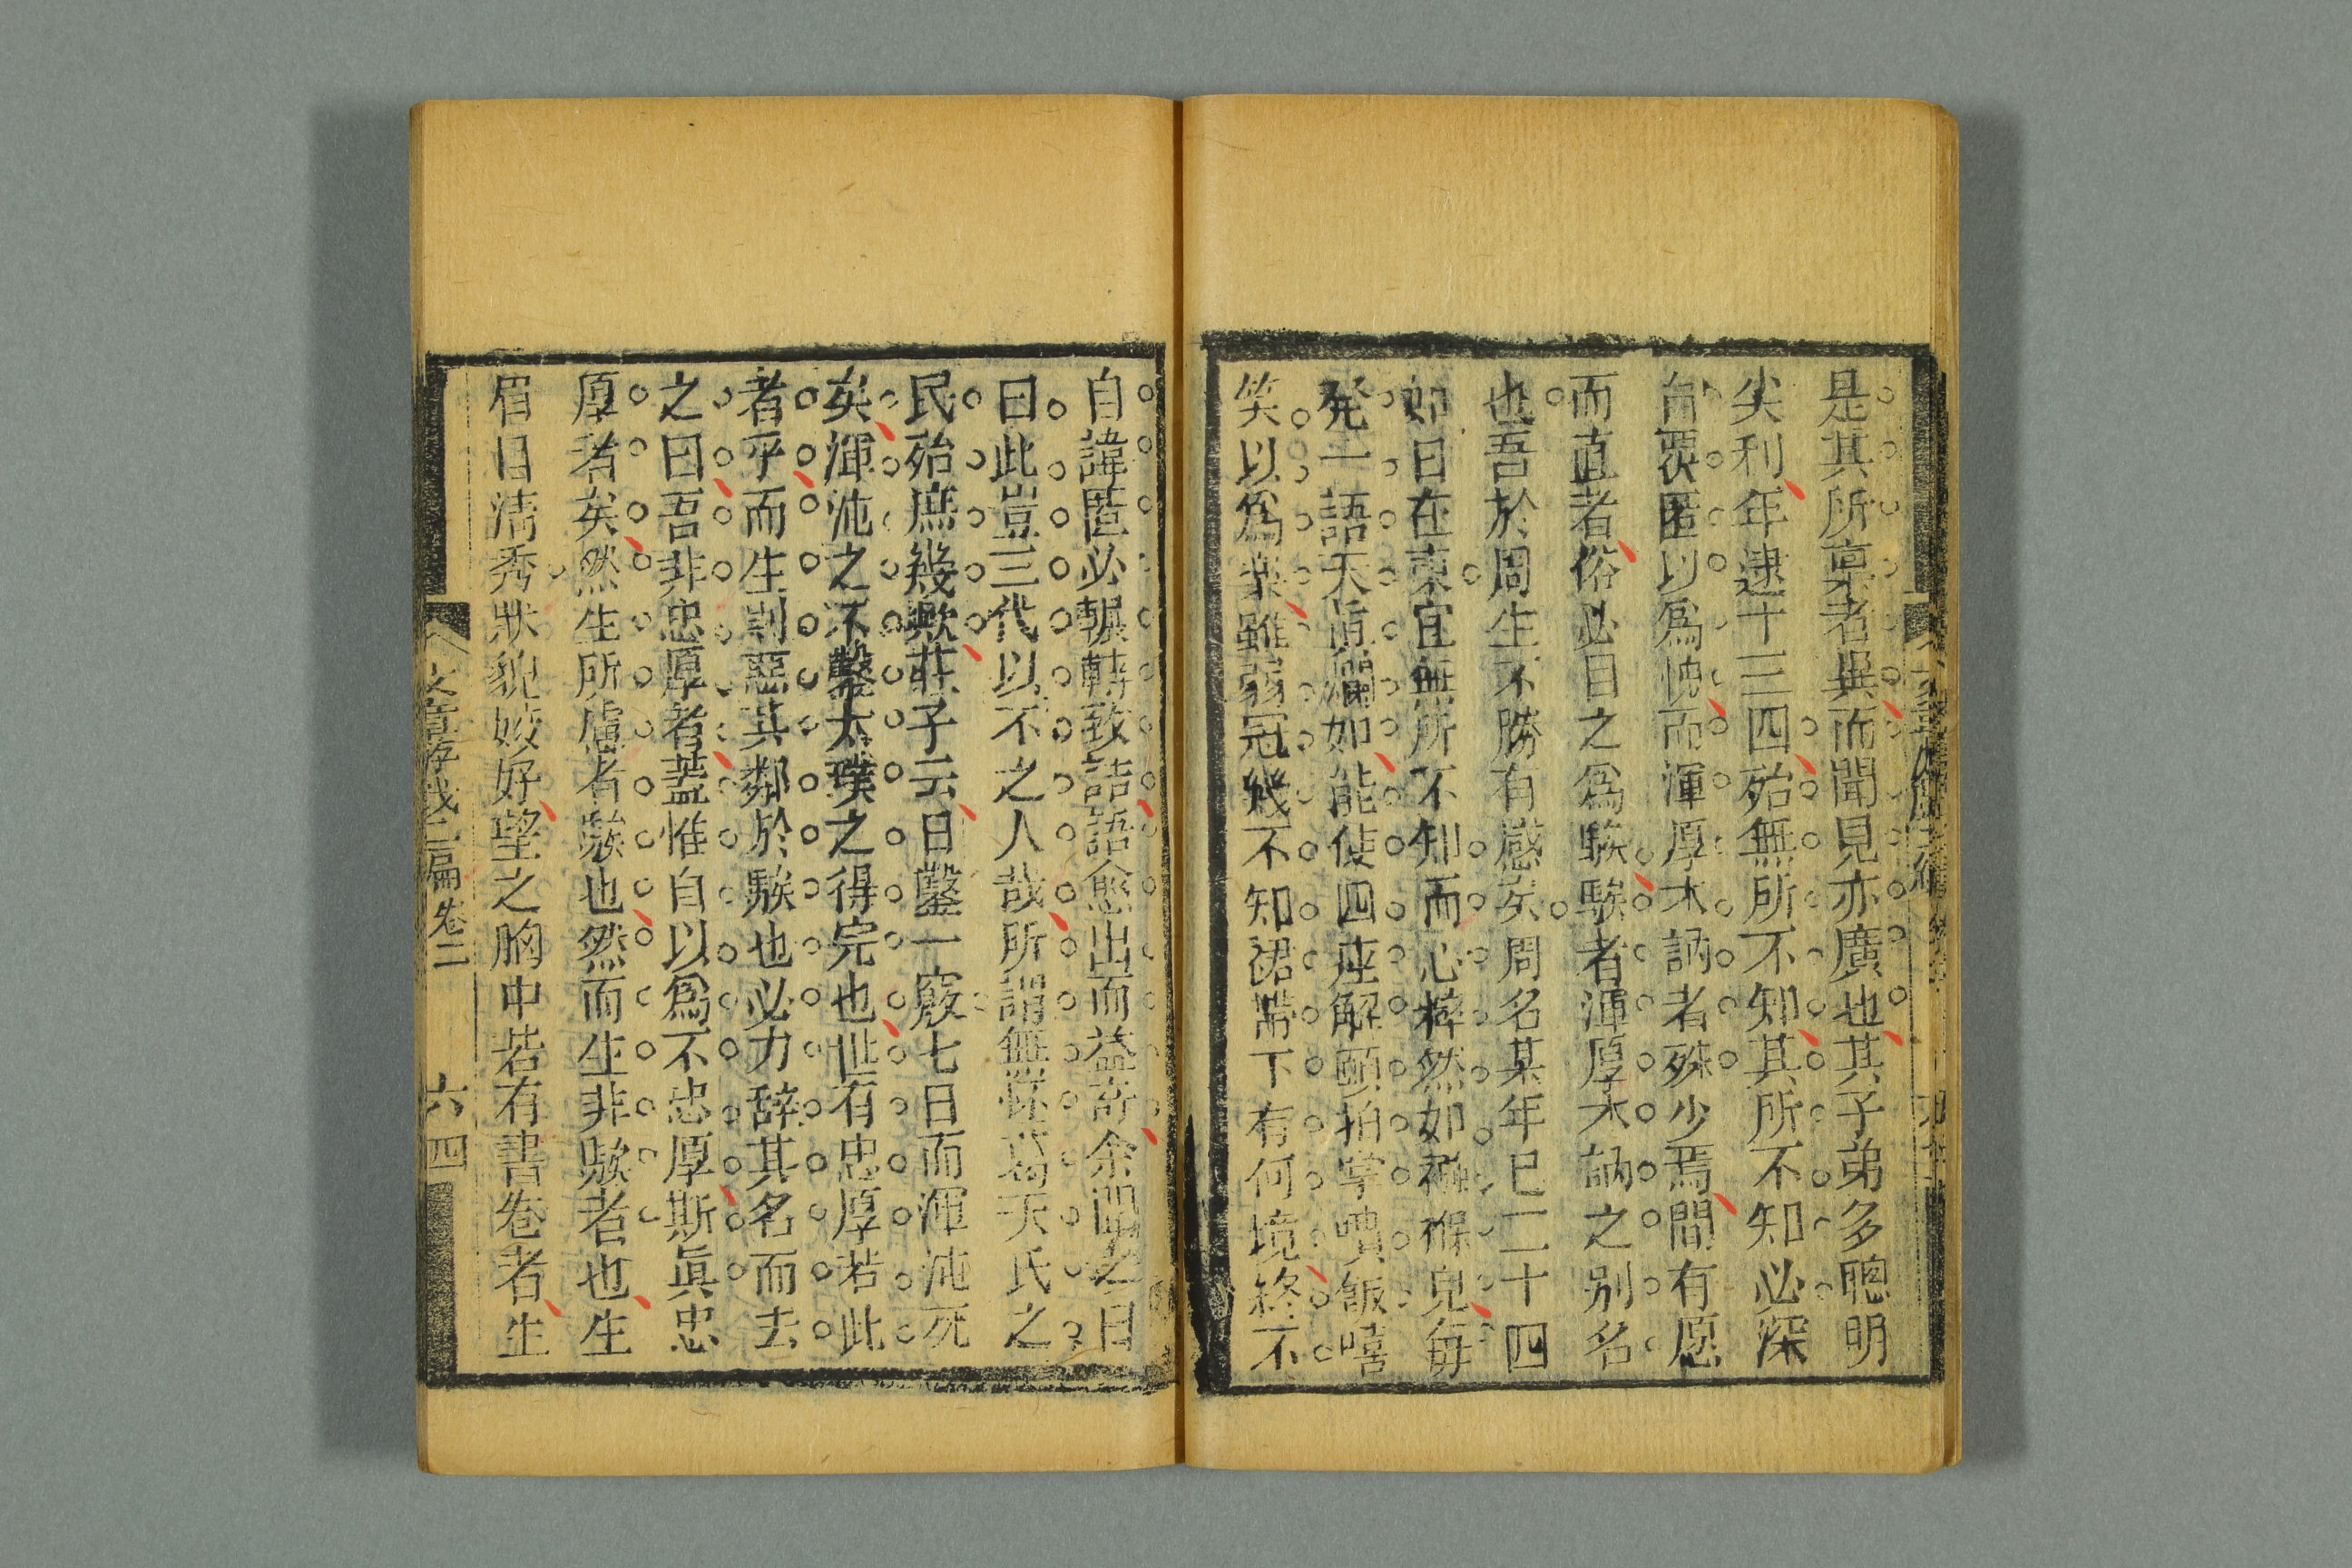 是其所稟者異而聞見亦廣也其子弟多聰明
尖利年逮十三四殆無所不知其所不知必深
自覆匿以爲愧而渾厚木訥者殊少焉間有愿
而直者俗必目之爲騃騃者渾厚木訥之别名
也吾於周生不勝有感矣周名某年巳二十四
如日在東宜無所不知而心粹然如襁褓兒每
発一語天眞爛如能使四座解頤拍掌噴飯嘻
笑以爲樂雖弱冠幾不知裙帶下有何境終不
自諱匿必輾轉致詰語愈出而益竒余聞之曰
曰此豈三代以下之人哉所謂無懷葛天氏之
民殆庶幾歟莊子云日鑿一竅七日而渾沌死
矣渾沌之不鑿太璞之得完也世有忠厚若此
者乎而生則惡其鄰於騃也必力辭其名而去
之曰吾非忠厚者葢惟自以爲不忠厚斯眞忠
厚者矣然生所慮者騃也然而生非騃者也生
眉目清秀狀貌姣好望之胸中若有書卷者生
文章游戲二編 卷二 六四